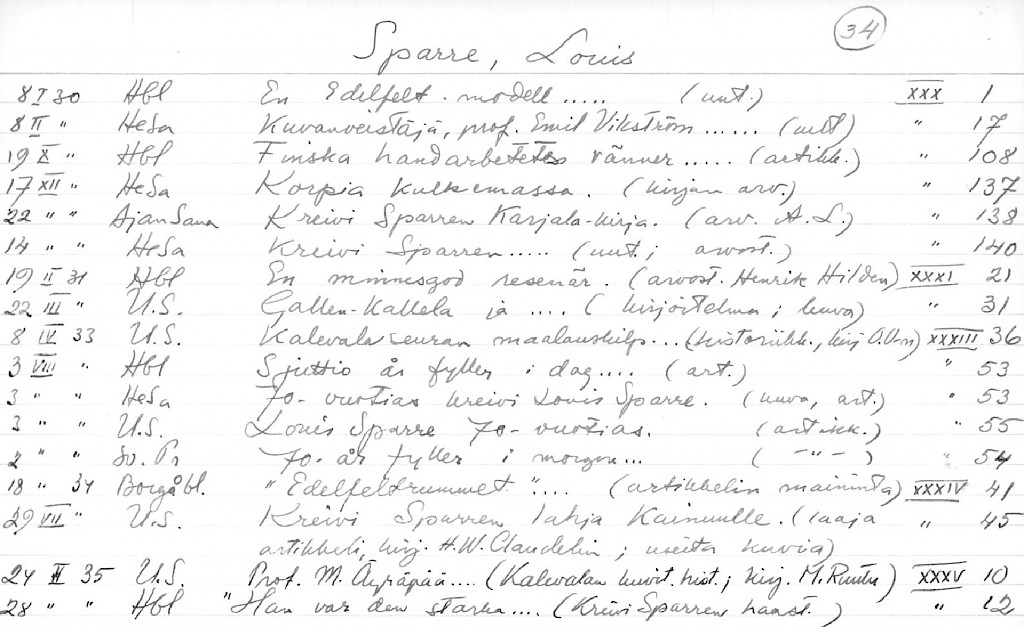 34
Sparre, Louis
8 I 30 Hbl En Edelfelt-modell ..... (uut.) XXX 1
8 II " HeSa Kuvanveistäjä, prof. Emil Vikström ...... (uut) " 17
19 X " Hbl Finska handarbetets vänner ..... (artikk.) " 108
17 XII " HeSa Korpia kulkemassa. (kirjan arv.) " 137
22 " " Ajan Sana Kreivi Sparren Karjala-kirja. (arv. A.L.) " 138
14 " " HeSa Kreivi Sparren ..... (uut.; arvost.) " 140
19 II 31 Hbl En minnesgod resenär. (arvost. Henrik Hilden) XXXI 21
22 III " U.S. Gallen-Kallela ja .... (kirjoitelma; kuva) " 31
8 IV 33 U.S. Kalevalaseuran maalauskilp... (historiikk., kirj. XXXIII 36
3 VIII " Hbl Sjuttio år fyller i dag.... (art.) " 53
3 " " HeSa 70-vuotias kreivi Louis Sparre. (kuva, art.) " 53
3 " " U.S. Louis Sparre 70-vuotias. (artikk.) " 55
2 " " Sv. Pr 70-år fyller i morgon... ( - " - ) " 54
18 " 34 Borgåbl. "Edelfeldrummet".... (artikkelin maininta) XXXIV 41
29 VII " U.S. Kreivi Sparren lahja Kainuulle. (laaja " 45
artikkeli, kirj. H.W. Claudelin; useita kuvia)
24 II 35 U.S. Prof. M. Äyräpää.... (Kalevalan kuvit. hist.; kirj. M. XXXV 10
28 " " Hbl "Han var den starka.... (Kreivi Sparren haast.) " 12